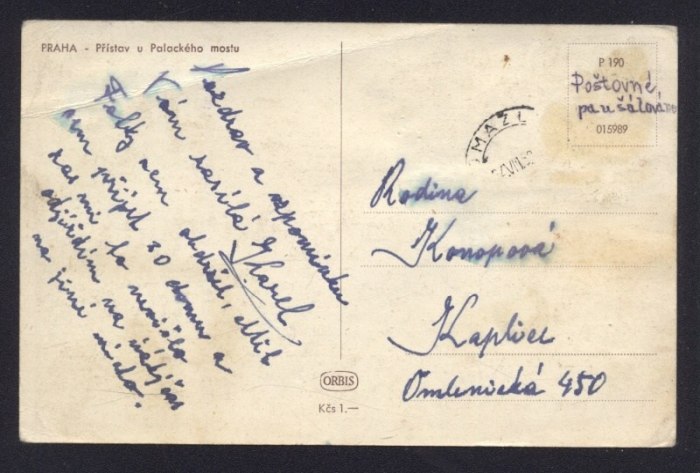 PRAHA - Přístav u Palackého mostu
Pozdrav a vzpomínku
Vám zasílá Karel
Fotky jsem obdržel, měl
jsem přijet 30 domu a
zas mi to nevyšlo
odjíždím na
na jiné místo.
P 190
Poštovné
paušálováno
015989
MAZL
Rodina
Konopová
Kaplice
Omlenická 450
ORBIS
Kčs 1.—